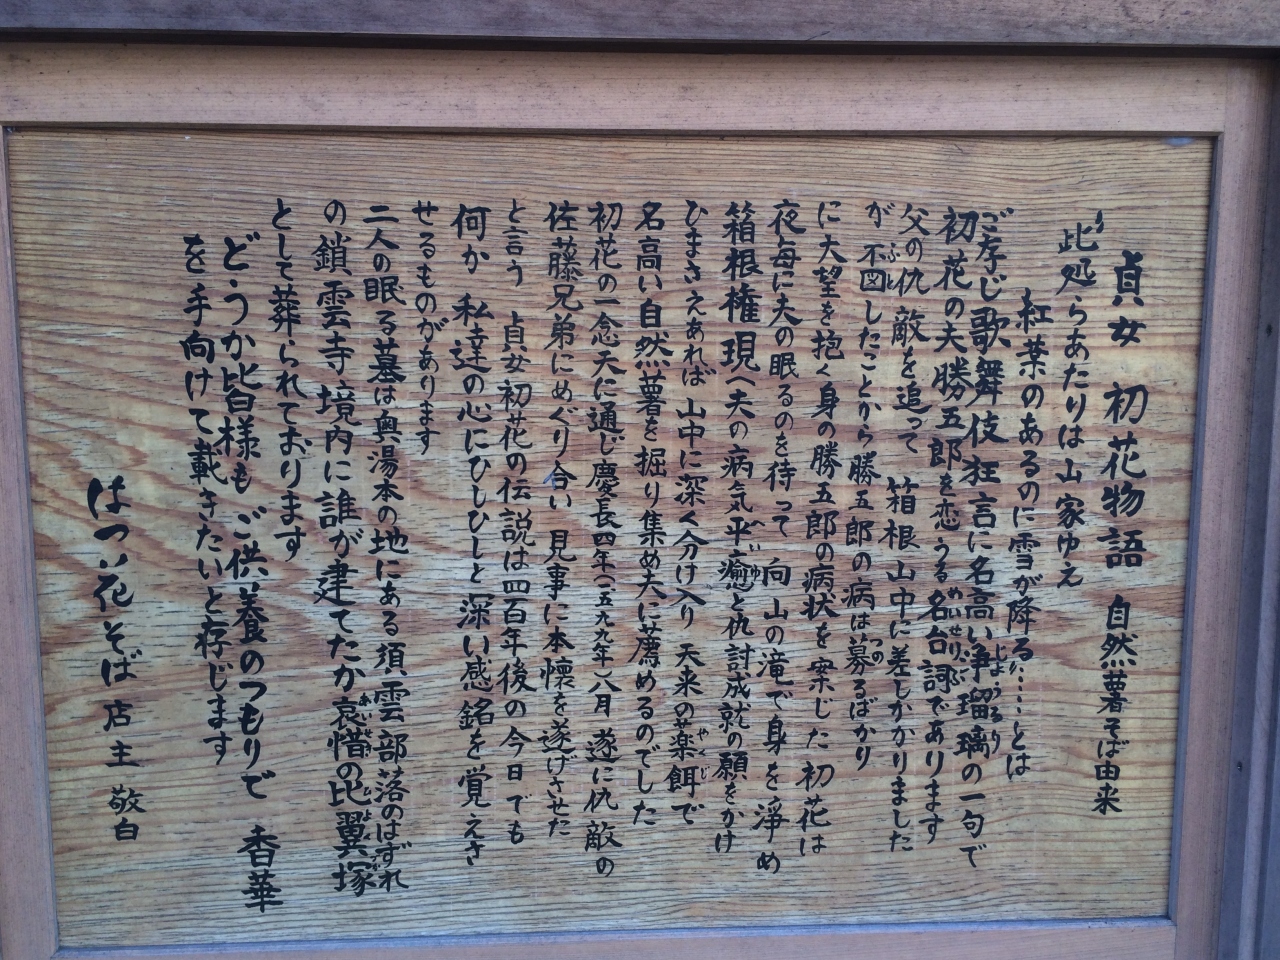 貞女 初花物語 自然薯そば由来
此処らあたりは山家ゆえ
紅葉のあるのに雪が降る……とは
ご存じ歌舞伎狂言に名高い浄瑠璃の一句で
初花の夫勝五郎を恋うる名台詞であります
父の仇敵を追って 箱根山中に差しかかりました
が 不図したことから勝五郎の病は募るばかり
に大望を抱く身の勝五郎の病状を案じた初花は
夜毎に夫の眠るのを待って 向山の滝で身を浄め
箱根権現へ夫の病気平癒と仇討成就の願をかけ
ひまさえあれば 山中に深く分け入り 天来の薬餌で
名高い自然薯を掘り集め夫に薦めるのでした
初花の一念天に通じ慶長四年(一五九九年)八月 遂に仇敵の
佐藤兄弟にめぐり合い 見事に本懐を遂げさせた
と言う 貞女初花の伝説は四百年後の今日でも
何か 私達の心にひしひしと深い感銘を覚えさ
せるものがあります
二人の眠る墓は奥湯本の地にある須雲部落のはずれ
の鎖雲寺境内に誰が建てたか哀惜の比翼塚
として葬られております
どうか皆様も ご供養のつもりで 香華
を手向けて載きたいと存じます
はつ花そば 店主 敬白